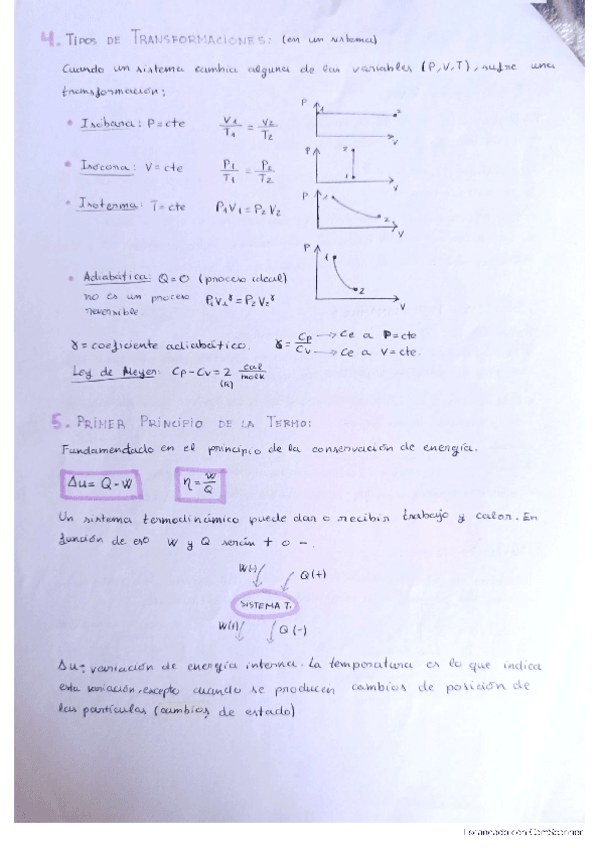 4. TIPOS DE TRANSFORMACIONES: (en un sistema)
Cuando un sistema cambia alguna de las variables (P,V,T), sufre una
transformación:
• Isóbara: P=cte V1/T1 = V2/T2
P 1 2 V
• Isócona: V=cte P1/T1 = P2/T2
P 2 1 V
• Isoterma: T=cte P1V1=P2V2
P 1 2 V
• Adiabática: Q=0 (proceso ideal)
no es un proceso P1V1^γ=P2V2^γ
reversible.
P 1 2 V
γ=coeficiente adiabático. γ= Cp/Cv → Ce a P=cte
→ Ce a V=cte.
Ley de Meyer: Cp-Cv=2 cal/molK
(R)
5. PRIMER PRINCIPIO DE LA TERMO:
Fundamentado en el principio de la conservación de energía.
Δu= Q-W η=W/Q
Un sistema termodinámico puede dar o recibir trabajo y calor. En
función de eso W y Q serán + o -.
W(-) Q(+)
SISTEMA T.
W(+) Q(-)
Δu: variación de energía interna. La temperatura es lo que indica
esta variación, excepto cuando se producen cambios de posición de
las partículas (cambios de estado)
Escaneado con CamScanner